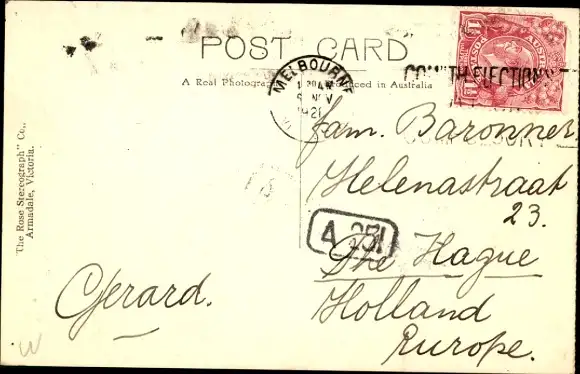 POST CARD
A Real Photogra in Australia
MELBOURNE
NOV
COM'TH ELECTION
The Rose Stereograph" Co.,
Armadale, Victoria.
Fam. Baronner
Helenastraat
23.
The Hague
Holland
Europe.
Gerard.